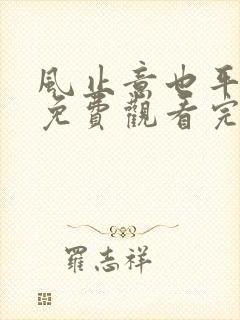 風止意也平
免費觀看完
羅志祥